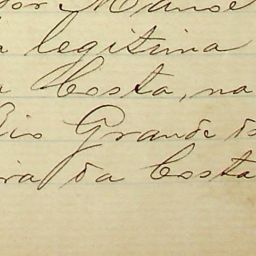 por Manoe
a legitima
a Costa, na
Rio Grande do
ira da Costa